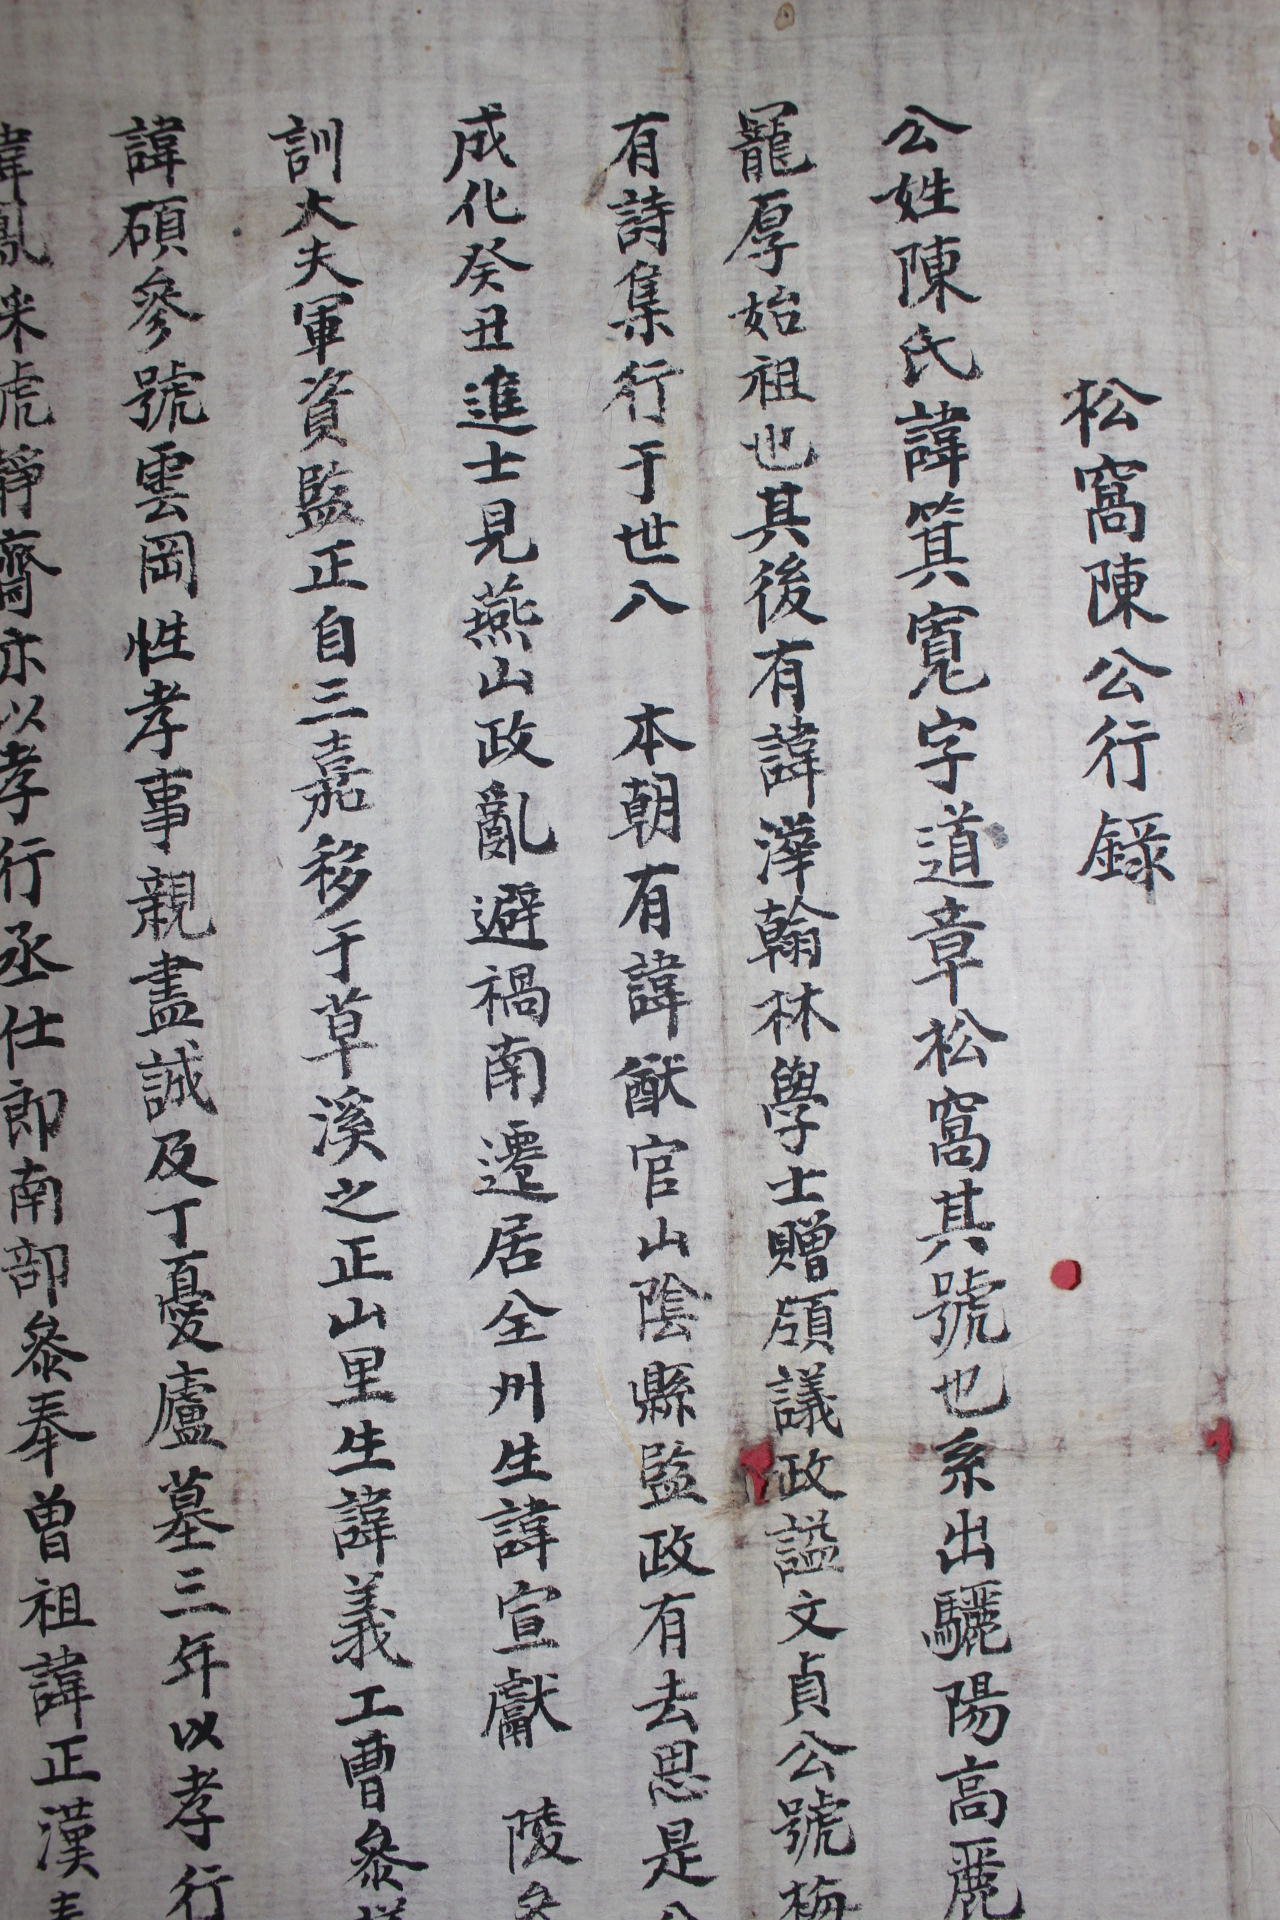 松窩陳公行錄
公姓陳氏諱箕寬字道章松窩其號也系出驪陽高麗
厚始祖也其後有諱澕翰林學士贈領議政諡文貞公號梅
有詩集行于世入 本朝有諱猷官山陰縣監政有去思是公
成化癸丑進士見燕山政亂避禍南遷居全州生諱宣獻 陵參
訓大夫軍資監正自三嘉移于草溪之正山里生諱義工曹參
諱碩參號雲岡性孝事親盡誠及丁憂廬墓三年以孝行
諱鳳采號靜齋亦以孝行丞仕郎南部參奉曾祖諱正漢